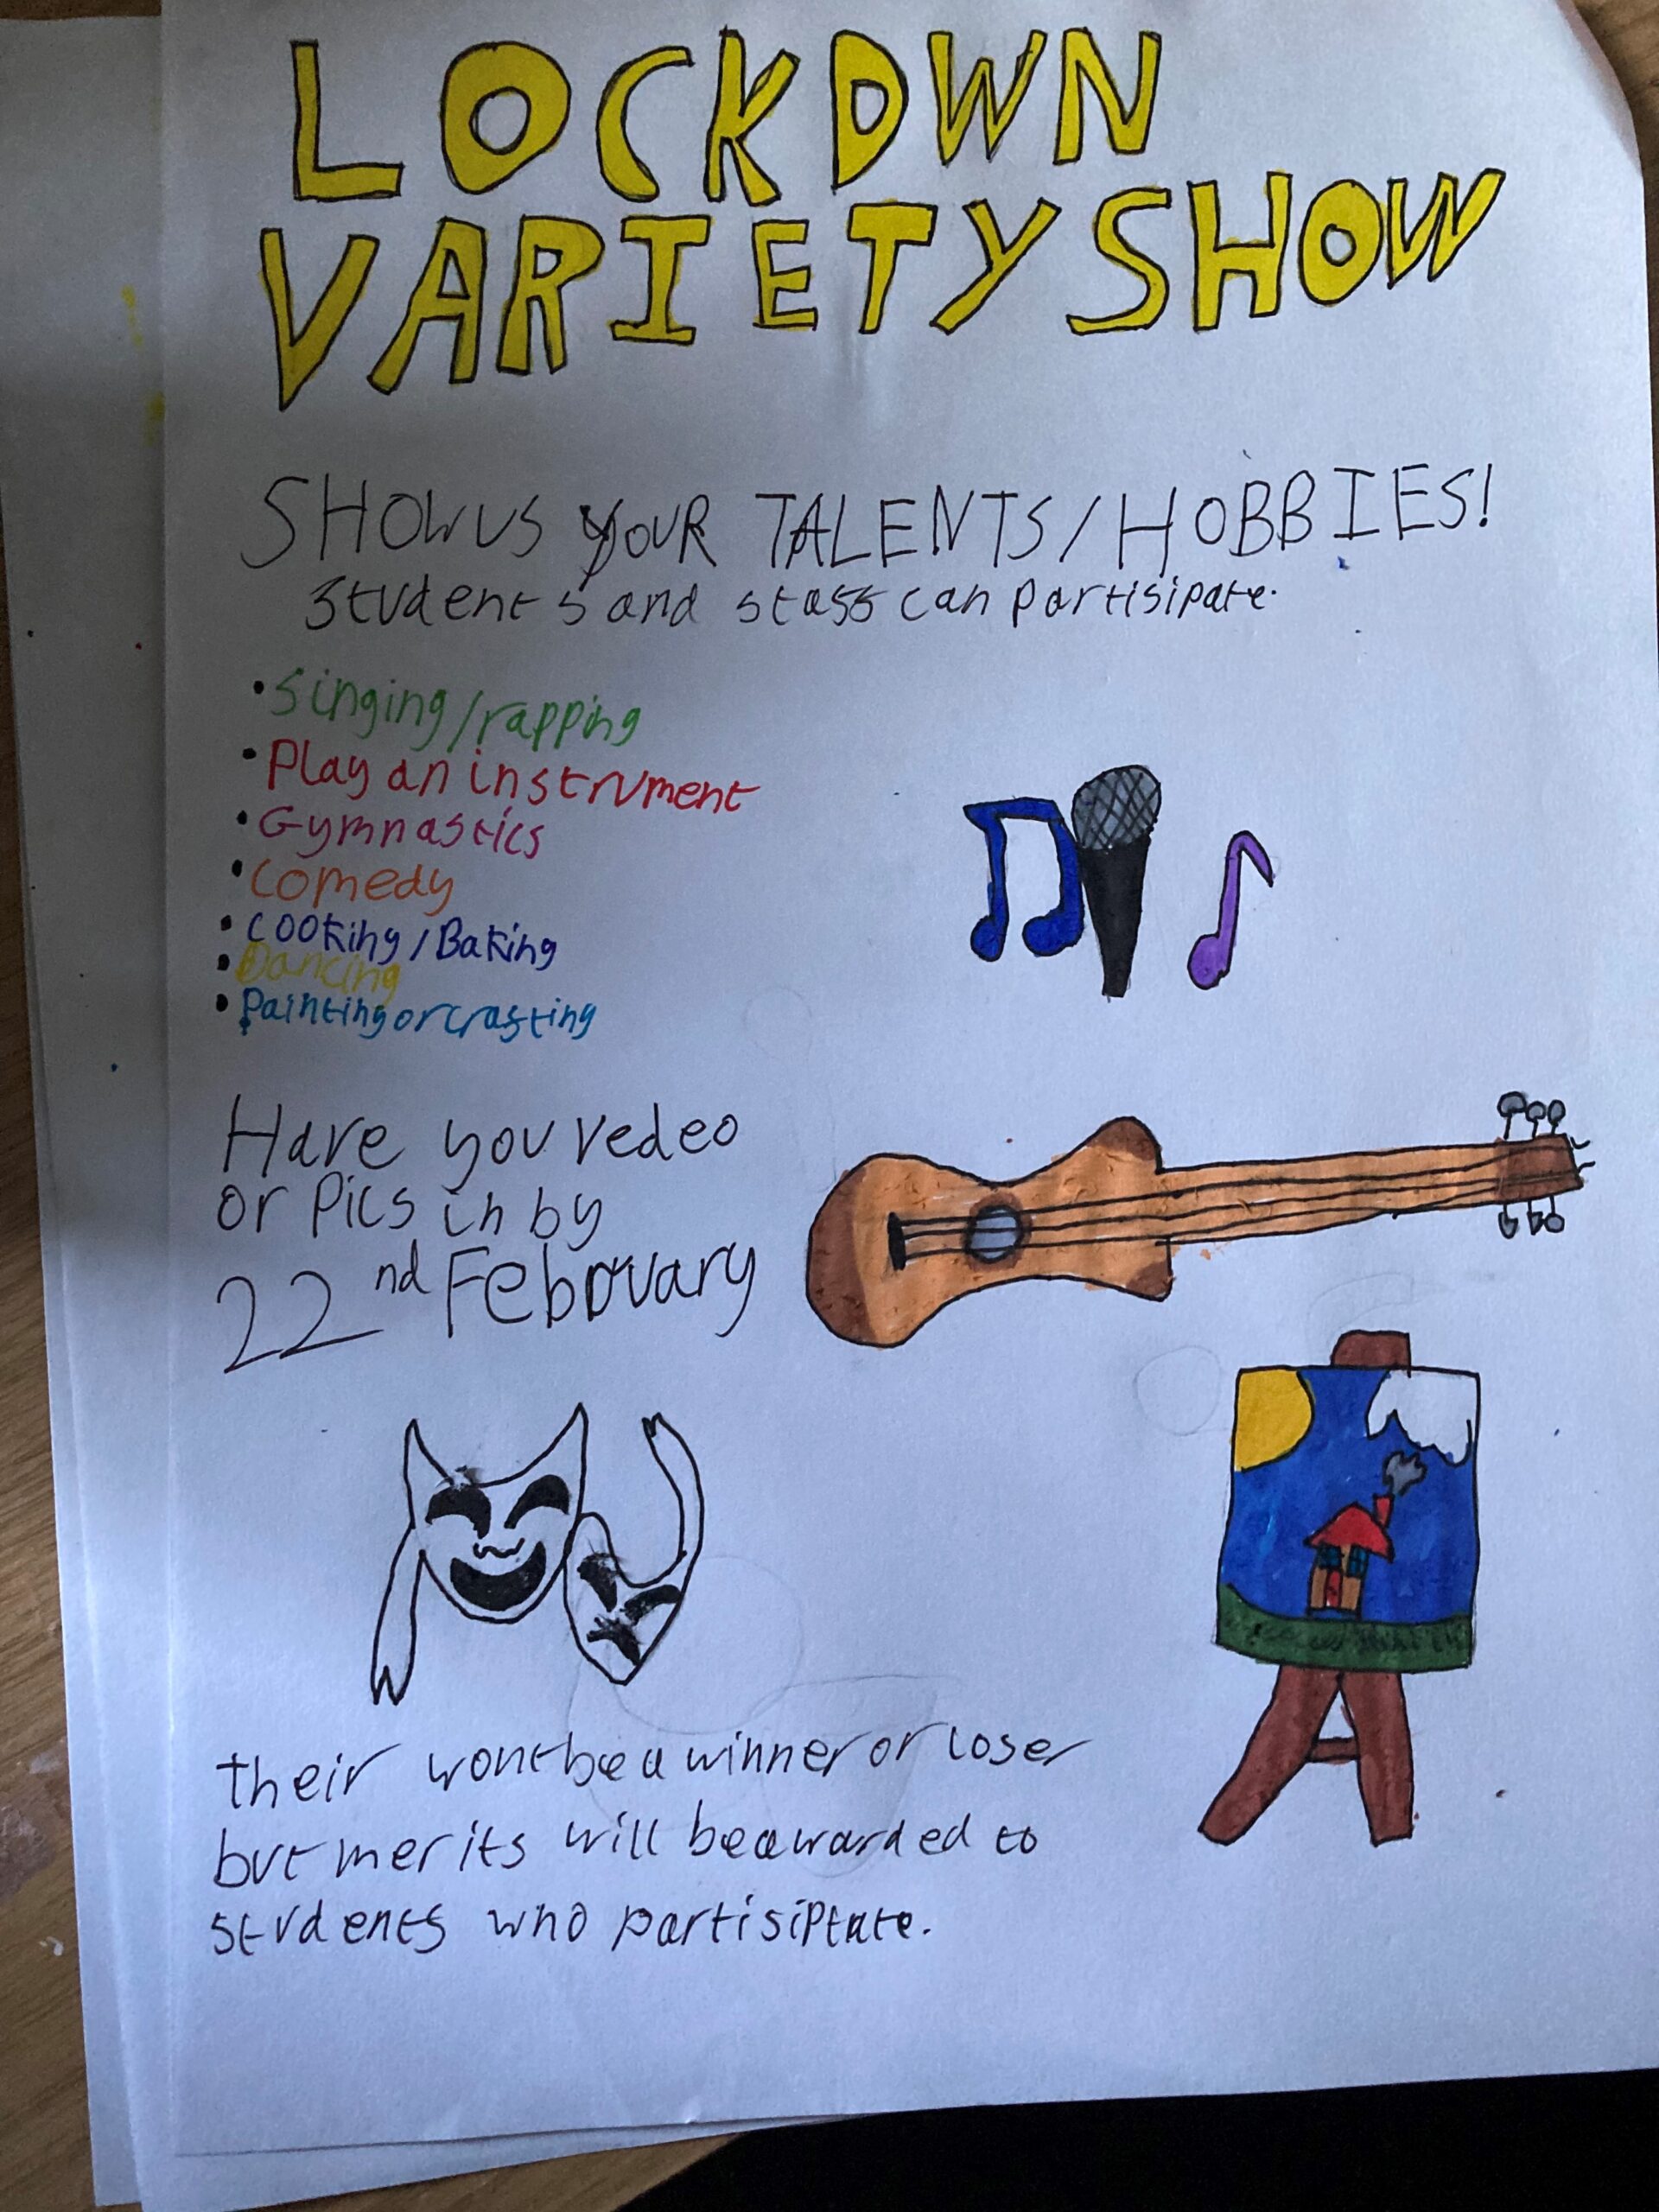 LOCKDWN
VARIETY SHOW
SHOW US YOUR TALENTS/HOBBIES!
Students and staff can partisipate.
• Singing/rapping
• Play an instrument
• Gymnastics
• Comedy
• Cooking/Baking
• Dancing
• Painting or crafting
Have you vedeo
or Pics in by
22nd February
their wont be a winner or loser
but merits will be awarded to
students who partisiptate.